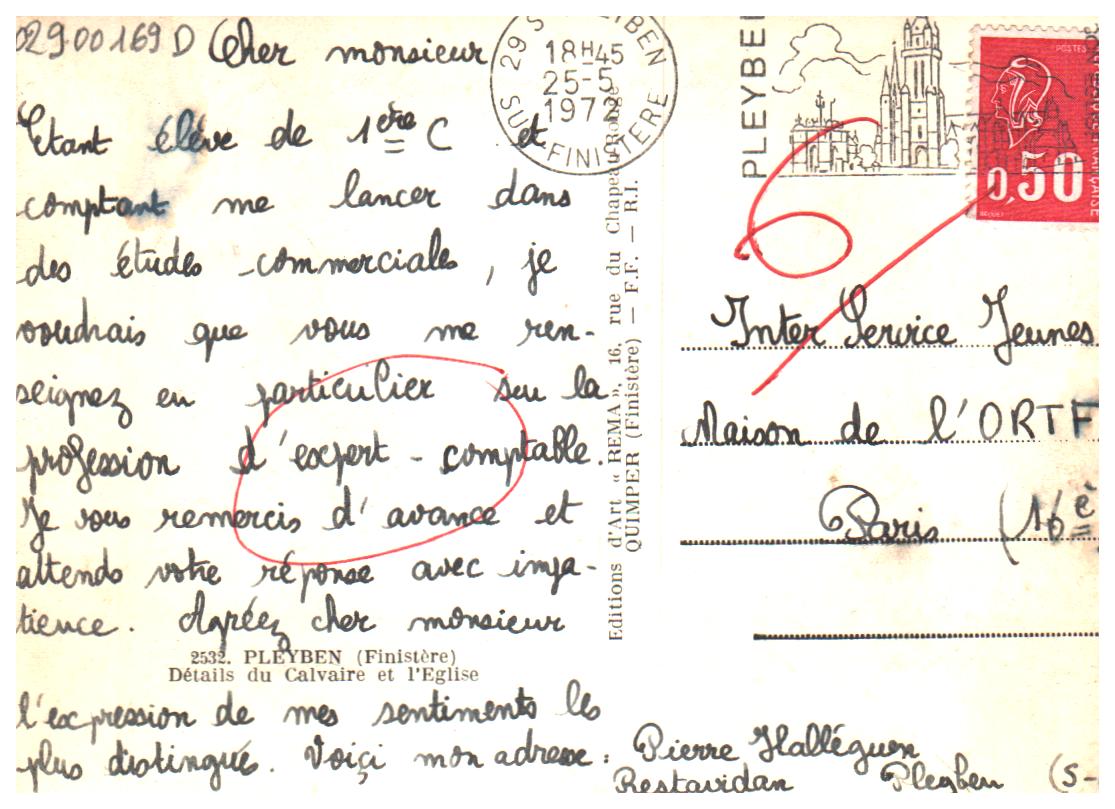 02900169 D
Cher monsieur
Etant élève de 1ère C et
comptant me lancer dans
des études commerciales, je
voudrais que vous me ren-
seignez en particulier sur la
profession d'expert-comptable.
Je vous remercis d'avance et
attends votre réponse avec impa-
tience. Agréez cher monsieur
2532. PLEYBEN (Finistère)
Détails du Calvaire et l'Eglise
l'expression de mes sentiments les
plus distingué. Voiçi mon adresse :
Pierre Halléguen
Restavidan Pleyben (S-
Editions d'Art « REMA », 16, rue du Chapeau-Rouge
QUIMPER (Finistère) — F.F. — R.I.
29 S PLEYBEN
18H45
25-5
1972
SUD-FINISTERE
PLEYBEN
POSTES
0,50
REPUBLIQUE FRANÇAISE
BEQUET
Inter Service Jeunes
Maison de l'ORTF
Paris (16è